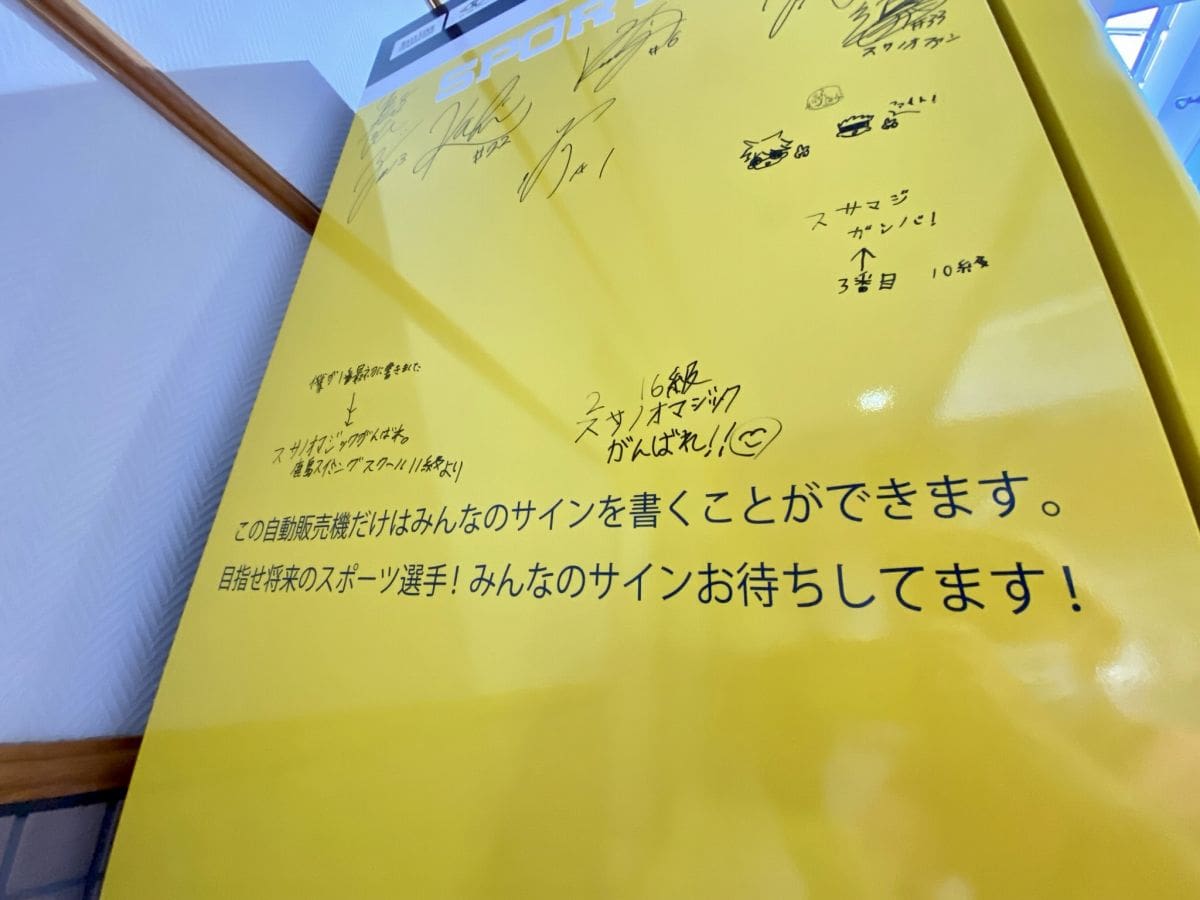 SPORT
#6
#33
スサノオファン
#22
#1
ファイト!
スサマジ
ガンバ!
↑
3番目 10級
僕が1番最初に書きました
↓
スサノオマジックがんばれ。
鹿島スイミングスクール11級より
2 16級
スサノオマジック
がんばれ!!
この自動販売機だけはみんなのサインを書くことができます。
目指せ将来のスポーツ選手!みんなのサインお待ちしてます!